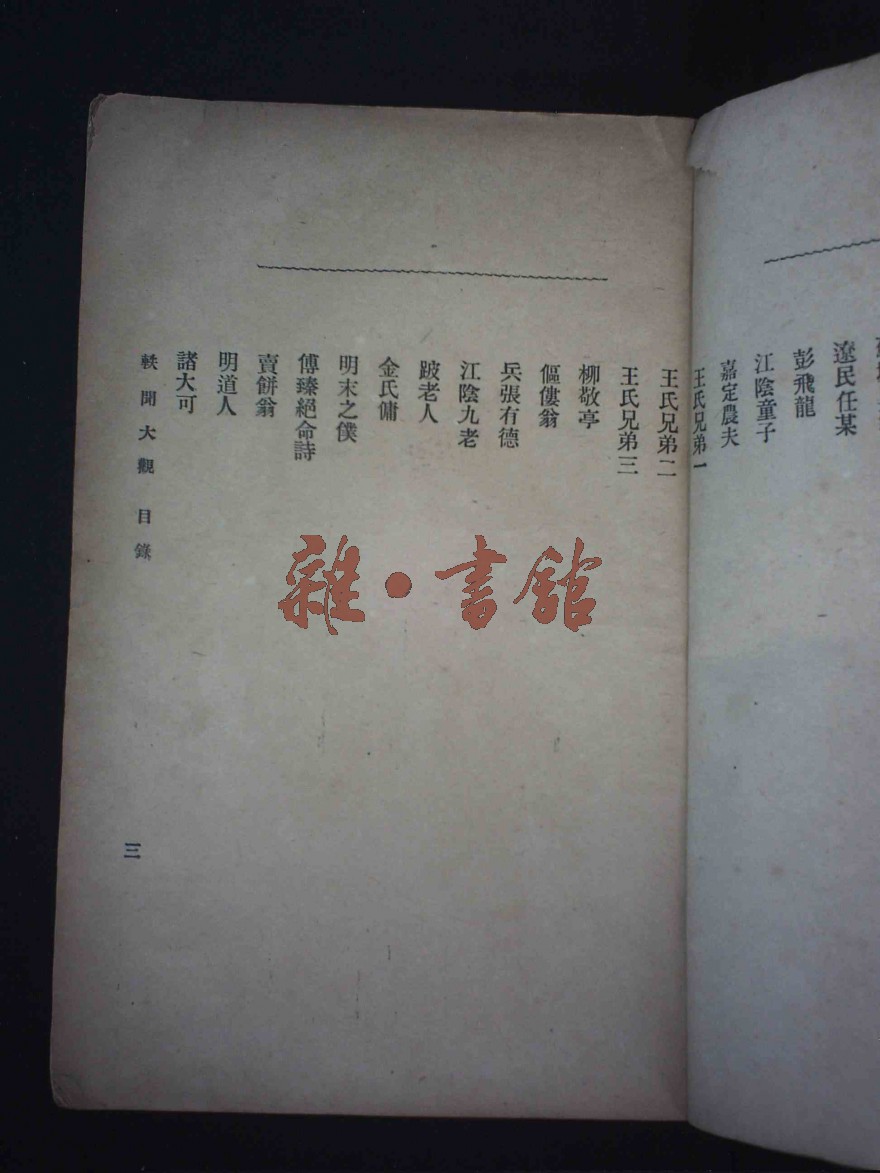 遼民任某
彭飛龍
江陰童子
嘉定農夫
王氏兄弟一
王氏兄弟二
王氏兄弟三
柳敬亭
傴僂翁
兵張有德
江陰九老
跛老人
金氏傭
明末之僕
傅臻絕命詩
賣餅翁
明道人
諸大可
軼聞大觀 目錄
三
雜·書館